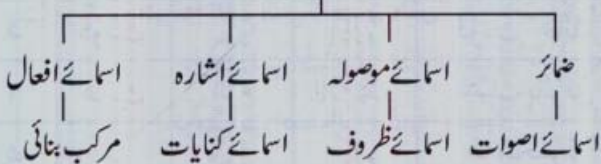 ضمائر اسمائے موصولہ اسمائے اشارہ اسمائے افعال
اسمائے اصوات اسمائے ظروف اسمائے کنایات مرکب بنائی